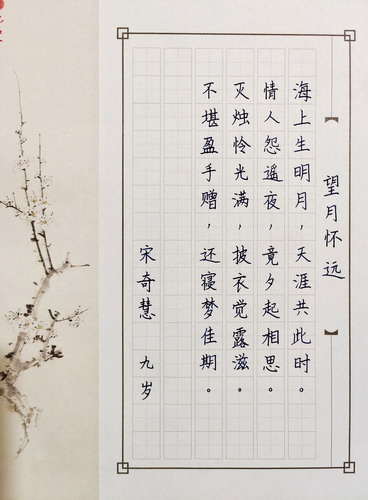 望月怀远
海上生明月，天涯共此时。
情人怨遥夜，竟夕起相思。
灭烛怜光满，披衣觉露滋。
不堪盈手赠，还寝梦佳期。
宋奇慧 九岁